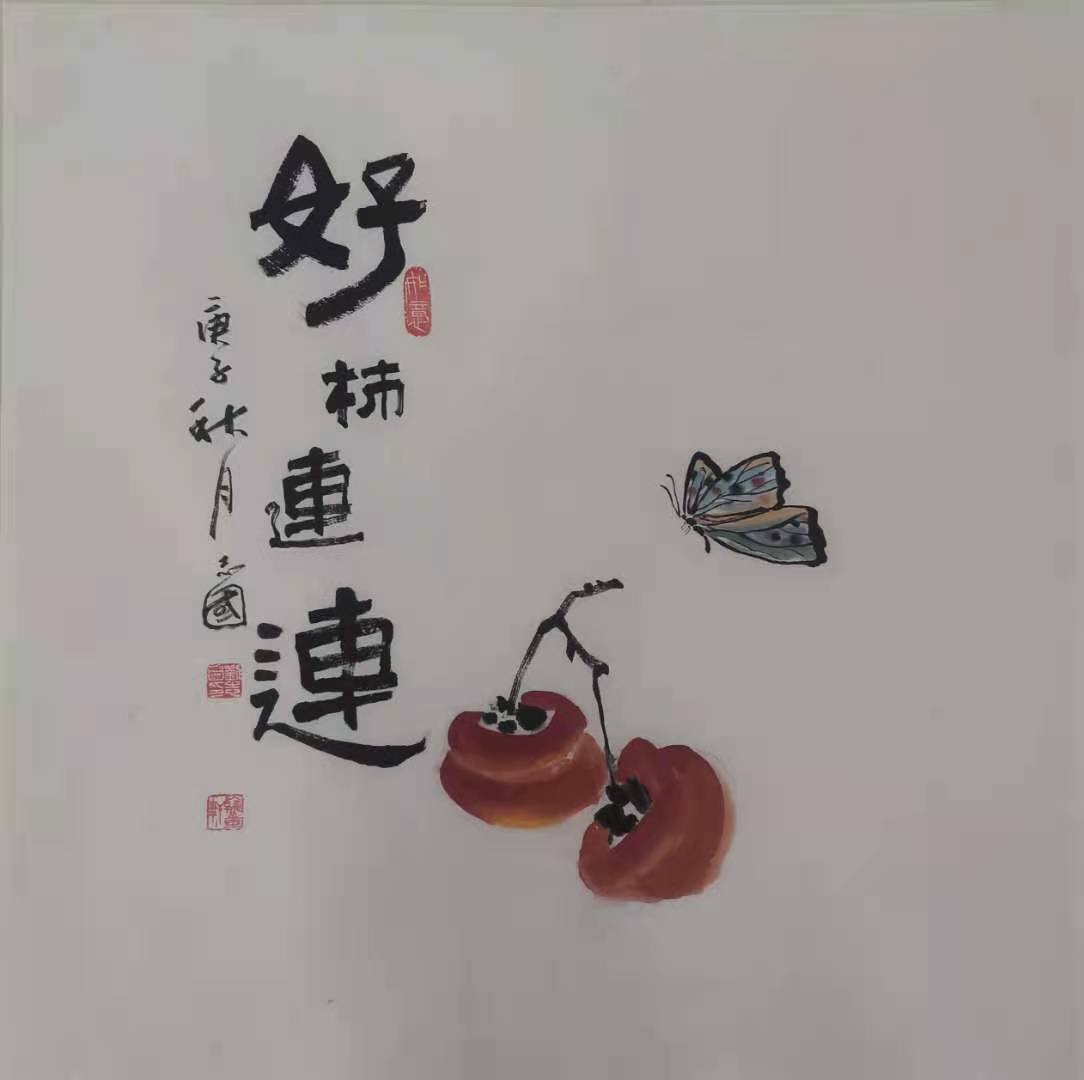 好柿連連
如意
庚子秋月志國